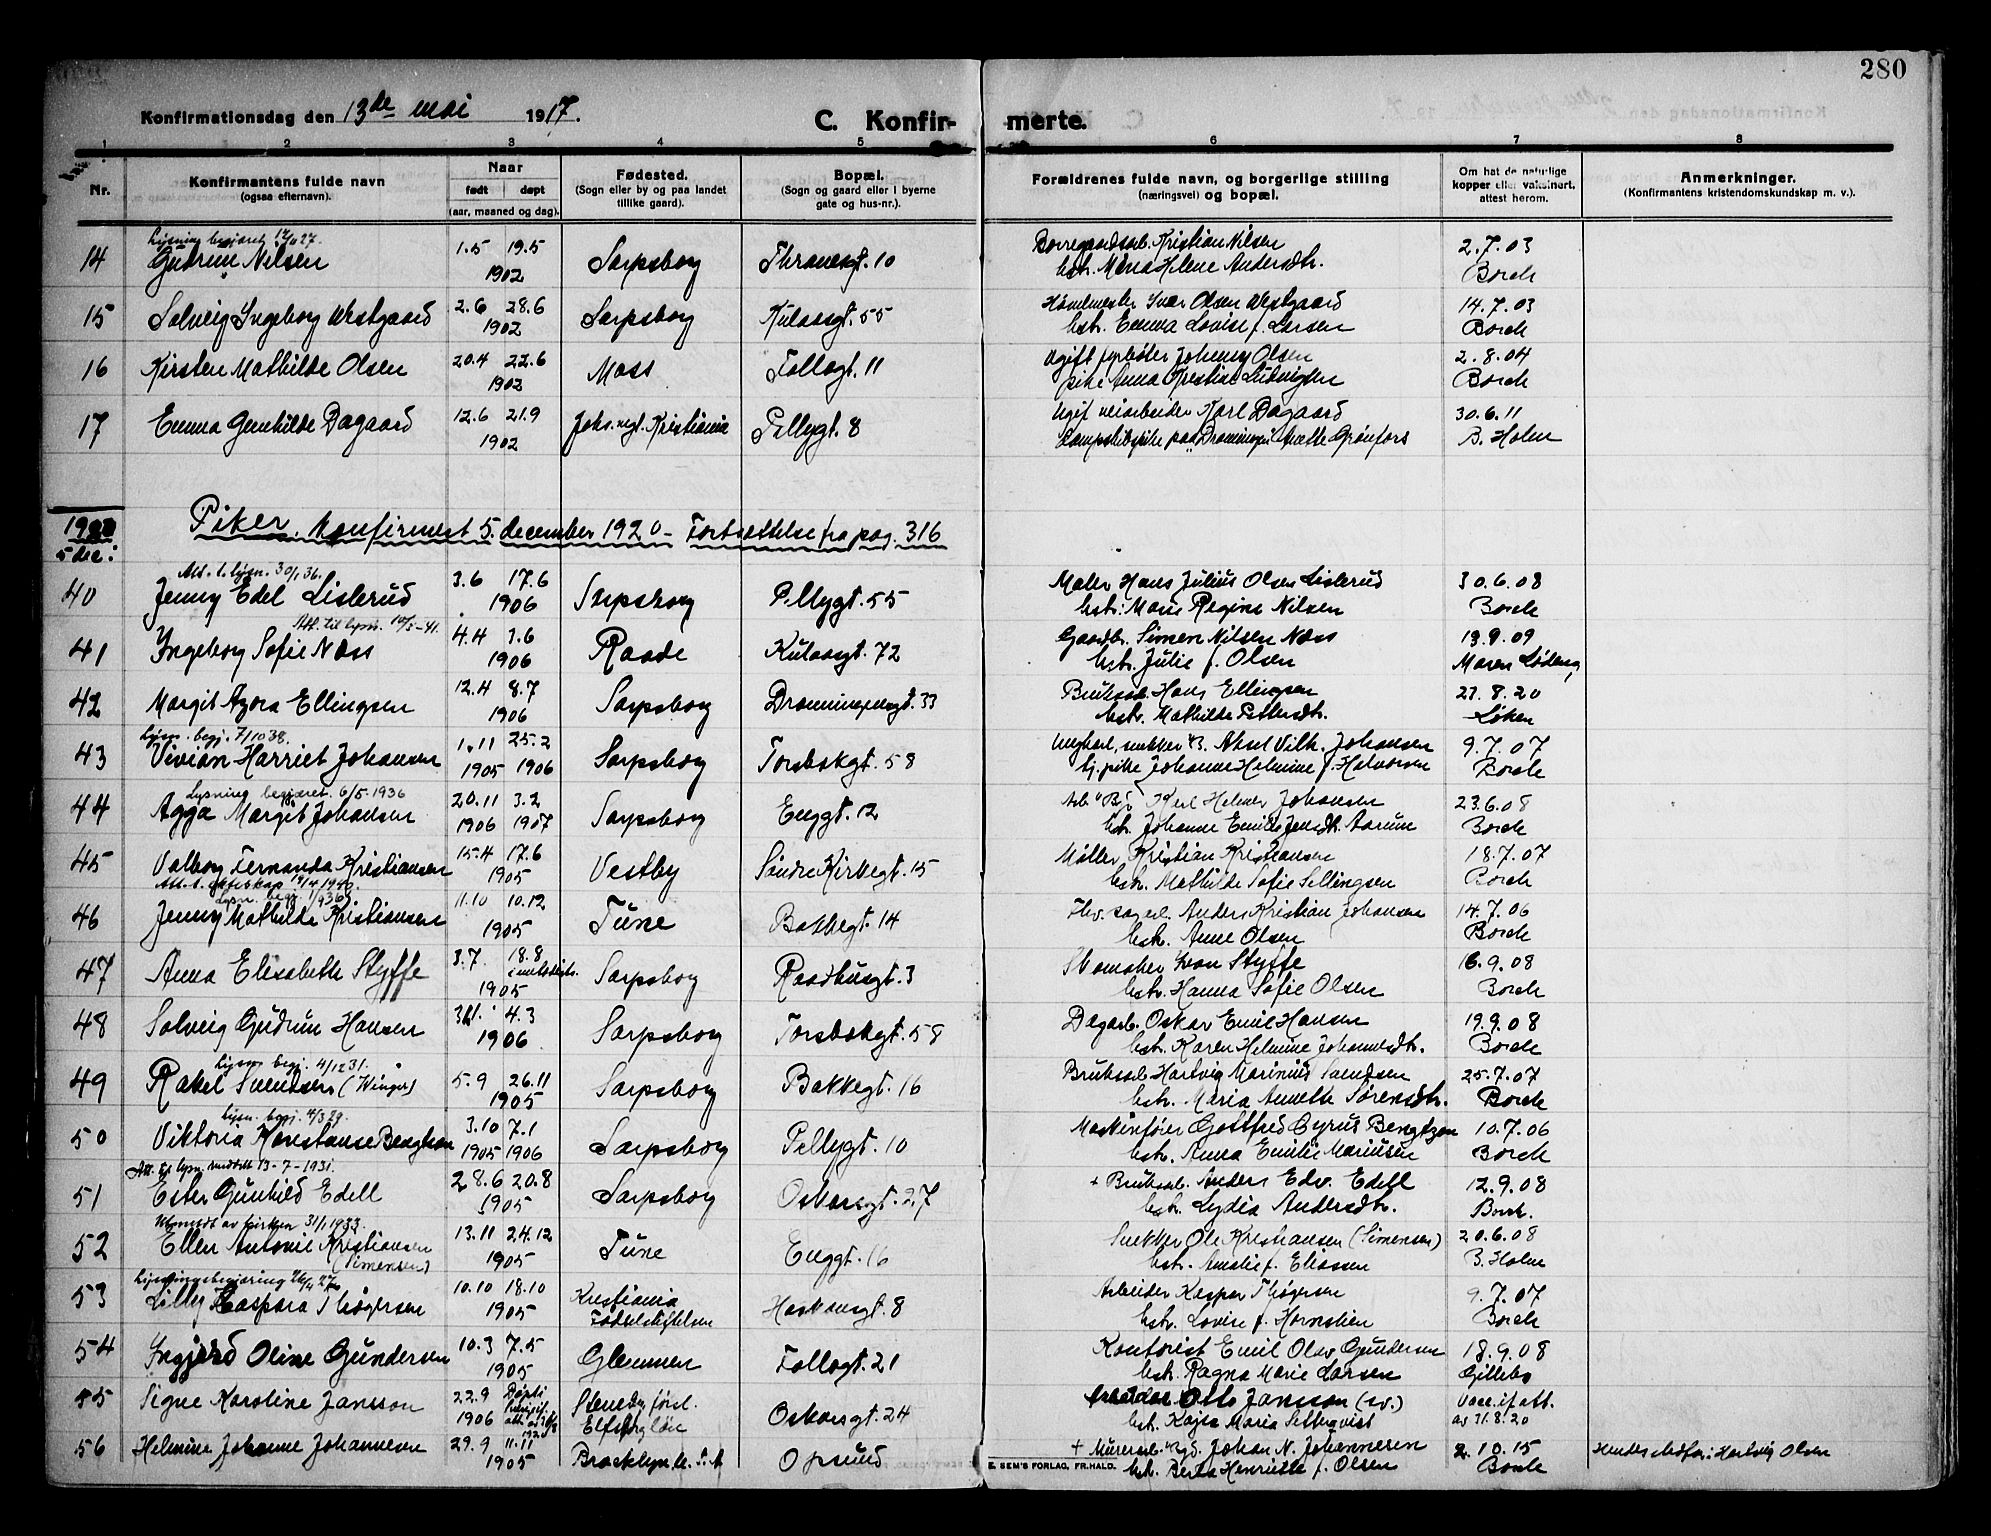 280
Konfirmationsdag den 13de mai 1917.
C. Konfirmerte.
1 2 3 4 5 6 7 8
Nr.
Konfirmantens fulde navn
(ogsaa efternavn).
Naar
født døpt
(aar, maaned og dag).
Fødested.
(Sogn eller by og paa landet
tillike gaard).
Bopæl.
(Sogn og gaard eller i byerne
gate og hus-nr.).
Forældrenes fulde navn, og borgerlige stilling
(næringsvei) og bopæl.
Om hat de naturlige
kopper eller vaksinert,
attest herom.
Anmerkninger.
(Konfirmantens kristendomskundskap m. v.).
Lysning begjæret
14 Gudrun Nilsen 1.5 19.5 1902 Sarpsborg Thranesgt. 10 Borregaardsarb. Kristian Nilsen 2.7.03
hstr. Maria Helene Andersdtr. Borch
15 Solveig Ingeborg Westgaard 2.6 28.6 1902 Sarpsborg Kulaasgt. 55 Ivar Olsen Westgaard 14.7.03
hstr. Emma Lovise f. Larsen Borch
16 Kirsten Mathilde Olsen 20.4 22.6 1902 Moss Follogt. 11 Ugift fyrbøter Johnny Olsen 2.8.04
pike Anna Kristine Ludvigsen Borch
17 Emma Gunhilde Dagaard 12.6 21.9 1902 Joh. mgt. Kristiania Pellygt. 8 Ugift veiarbeider Karl Dagaard 30.6.11
paa "Dronningen" Anette Grønfors B. Holm
1920
5 dec:
Piker. Konfirmert 5. december 1920 - Fortsættelse fra pag. 316
Att. t. lysn. 30/1 36.
40 Jenny Edel Lislerud 3.6 17.6 1906 Sarpsborg Pellygt. 55 Maler Hans Julius Olsen Lislerud 30.6.08
hstr. Marie Regine Nilsen Borch
Att. til lysn. 10/5-41.
41 Ingeborg Sofie Næss 4.4 3.6 1906 Raade Kulaasgt. 72 Gaardbr. Simen Nilsen Næss 13.9.09
hstr. Julie f. Olsen Maren Lødeng
42 Margit Azora Ellingsen 12.4 8.7 1906 Sarpsborg Dronningensgt. 33 Bruksarb. Hans Ellingsen 27.8.20
hstr. Mathilde Pettersdtr. Løken
Lysn. begj. 7/10 38.
43 Vivian Harriet Johansen 1.11 1905 25.2 1906 Sarpsborg Torsbekgt. 58 Ungkarl, snekker Aksel Vilh. Johansen 9.7.07
tj. pike Johanne Helmine f. Halvorsen Borch
Lysning begjæret. 6/5. 1936
44 Agga Margit Johansen 20.11 1906 3.2 1907 Sarpsborg Enggt. 12 Arb. Karl Helmer Johansen 23.6.08
hstr. Johanne Emilie Jensdtr. Aarum Borch
45 Valborg Fernanda Kristiansen 15.4 17.6 1905 Vestby Søndre Kirkegt. 15 Møller Kristian Kristiansen 18.7.07
Att. t. ektesk​ap 19/4 1940. hstr. Mathilde Sofie Sellingsen Borch
Lysn. begj.
46 Jenny Mathilde Kristiansen 11.10 10.12 1905 Tune Bakkegt. 14 Anders Kristian Johansen 14.7.06
hstr. Anne Olsen Borch
47 Anna Elisabeth Styffe 3.7. 18.8 1905 Sarpsborg Raadhusgt. 3 Skomaker Styffe 16.9.08
hstr. Hanna Sofie Olsen Borch
48 Solveig Gudrun Hansen 4.3 1906 Sarpsborg Torsbekgt. 58 Dagarb. Oskar Emil Hansen 19.9.08
hstr. Karen Helmine Johannesdtr. Borch
Lysn. begj. 4/12 31.
49 Rakel Svendsen (Winger) 5.9 26.11 1905 Sarpsborg Bakkegt. 16 Bruksarb. Hartvig Marinius Svendsen 25.7.07
hstr. Maria Annette Sørensdtr. Borch
Lysn. begj. 4/3 29.
50 Viktoria Konstanse Bengtson 3.10 1905 7.1 1906 Sarpsborg Pellygt. 10 Maskinfører Gottfred Cyrus Bengtzon 10.7.06
hstr. Anna Emilie Mariusen Borch
Att. til lysn. meddelt 13-7-1931.
51 Ester Gunhild Edell 28.6 20.8 1905 Sarpsborg Oskarsgt. 27 + Bruksarb. Anders Edv. Edell 12.9.08
hstr. Lydia Andersdtr. Borch.
Utmeldt av kirken 31/1 1933.
52 Ellen Antonie Kristiansen (Simensen) 13.11 24.12 1905 Tune Enggt. 16 Snekker Ole Kristiansen (Simensen) 20.6.08
hstr. Amalie f. Eliassen B. Holm
Lysningsbegjæring 26/4 27.
53 Lilly Kaspara Thøgersen 10.10 18.10 1905 Kristiania Fødselsstiftelsen Haakonsgt. 8 Arbeider Kasper Thøgersen 9.7.07
hstr. Lovise f. Hornslien Borch
54 Ingjerd Oline Gundersen 10.3 7.5 1905 Glemmen Follogt. 21 Kontorist Emil Olav Gundersen 18.9.08
hstr. Ragna Marie Larsen Gillebo
55 Signe Karoline Jansson 22.9 1906 Døpt i Oskarsgt. 24 Arbeider Otto Jansson (sv.) Vacc. if. att.
hstr. Kajsa Maria Setterqvist av 31.8.20
56 Helmine Johanne Johannesen 29.9 11.11 1905 Brooklyn Opsund + Murerarb. Johan N. Johannesen 2.10.15 Hendes stedfar: Hartvig Olsen
hstr. Berta Henriette f. Olsen Borch
E. SEM'S FORLAG, FR.HALD.